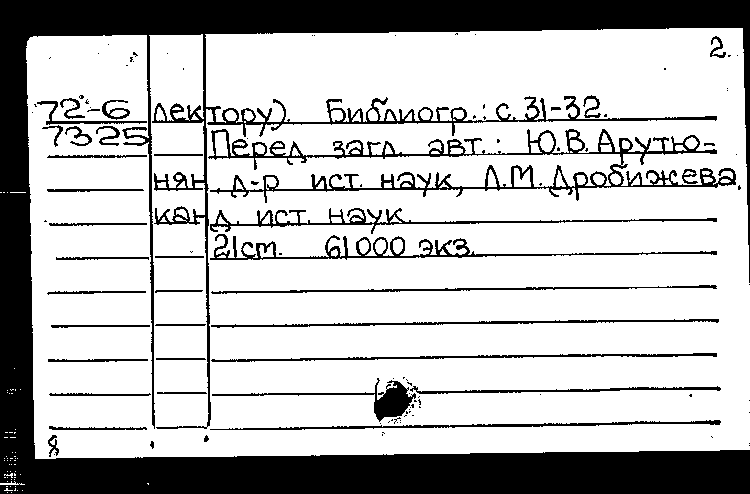 2.
72-6 лектору). Библиогр.: с. 31-32.
7325 Перед загл. авт.: Ю.В. Арутю-
нян, д-р ист. наук, Л.М. Дробижева,
канд. ист. наук.
21 см. 61000 экз.
8